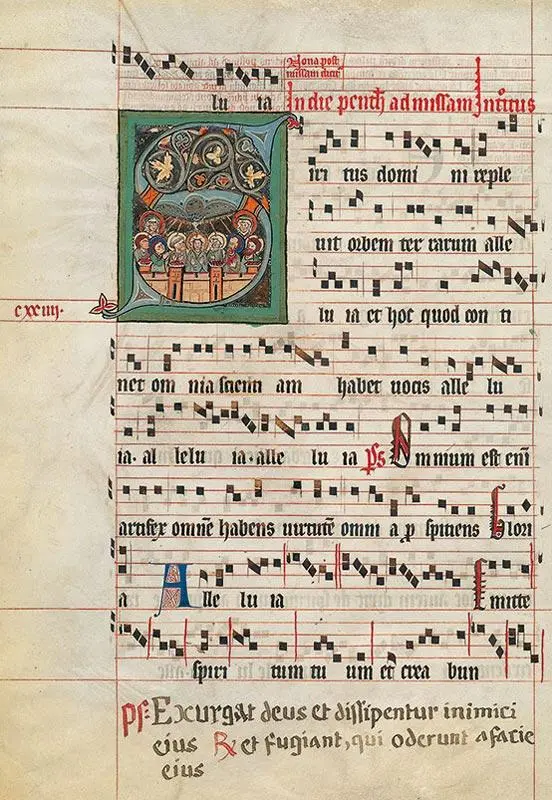 lu ia In die penth ad missam Introitus
Spiri tus domi ni reple
uit orbem ter rarum alle
lu ia et hoc quod con ti
cxxiiij.
net om nia scienti am habet uocis alle lu
ia. al lelu ia. alle lu ia ps Omnium est eni
artifex omne habens uirtute omni a p spiciens Glori
a Alle lu ia Emitte
spiri tum tu um et crea bun
ps: Exurgat deus et dissipentur inimici
eius R et fugiant, qui oderunt a facie
eius